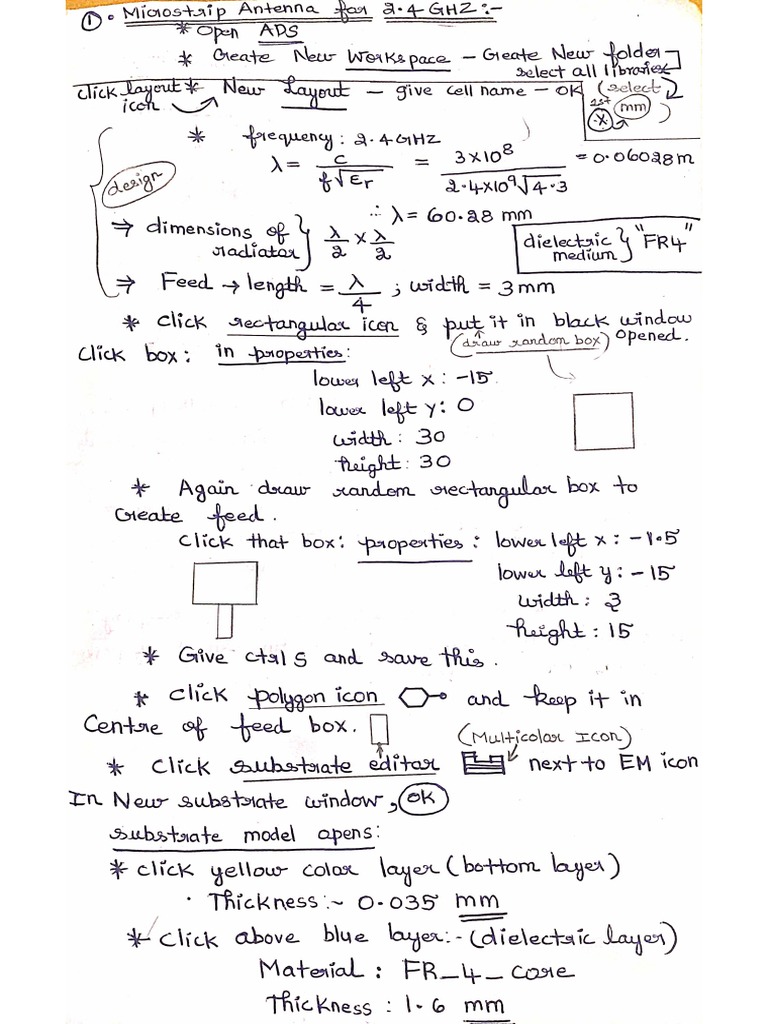 ①. Microstrip Antenna for 2.4 GHZ:-
* Open ADS
* Create New Workspace - Create New folder
select all libraries
Click layout icon * New Layout - give cell name - OK (select 1st mm)
* frequency: 2.4GHZ
design
λ = c / f√εr = 3×10^8 / 2.4×10^9√4.3 = 0.06028m
∴ λ = 60.28 mm
⇒ dimensions of radiator } λ/2 × λ/2
dielectric medium } "FR4"
⇒ Feed → length = λ/4 ; width = 3mm
* Click rectangular icon & put it in black window opened.
(draw random box)
Click box: in properties:
lower left x: -15
lower left y: 0
width: 30
height: 30
* Again draw random rectangular box to
Create feed.
Click that box: properties: lower left x: -1.5
lower left y: -15
width: 3
height: 15
* Give ctrl S and save this.
* Click polygon icon and keep it in
Centre of feed box.
(Multicolar Icon)
* Click substrate editar next to EM icon
In New substrate window, OK
substrate model apens:
* Click yellow color layer (bottom layer)
. Thickness:~ 0.035 mm
* Click above blue layer:- (dielectric layer)
Material: FR_4_Core
Thickness: 1.6 mm